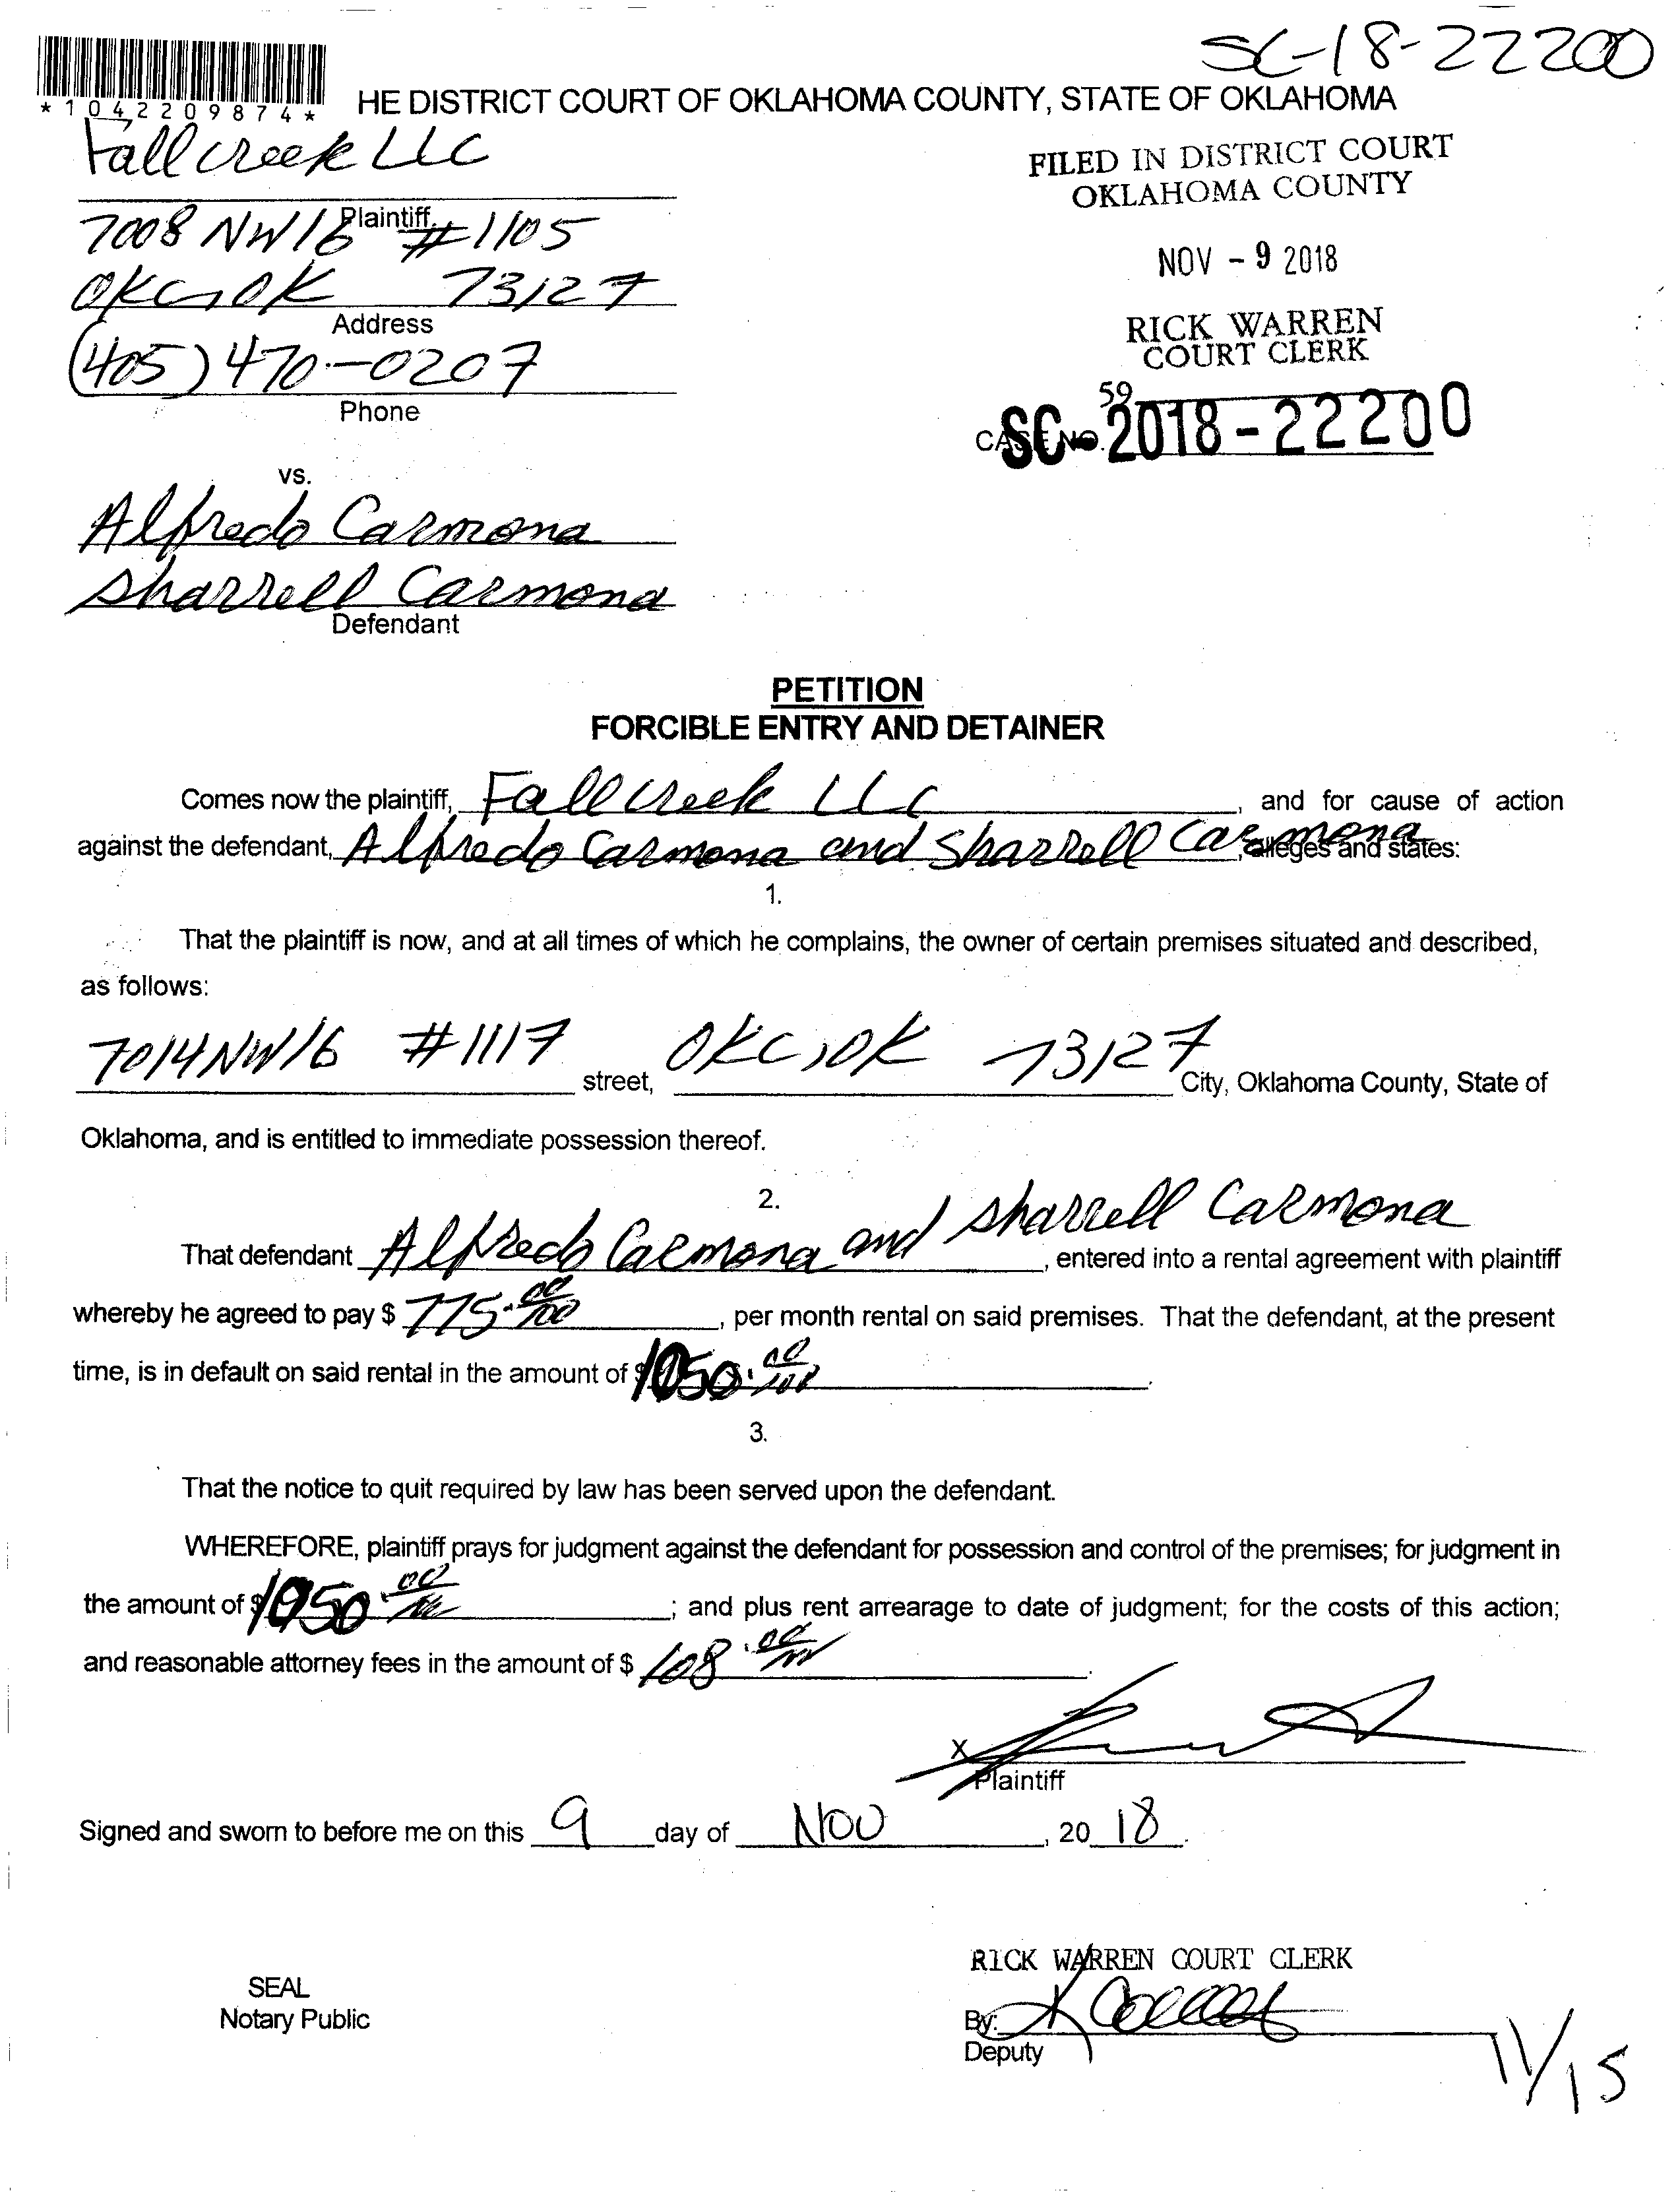 SC-18-22200
*1042209874*
HE DISTRICT COURT OF OKLAHOMA COUNTY, STATE OF OKLAHOMA
Fall creek LLC
FILED IN DISTRICT COURT
OKLAHOMA COUNTY
Plaintiff,
7008 NW 16 #1105
NOV - 9 2018
OKC, OK 73127
Address
RICK WARREN
COURT CLERK
(405) 470-0207
Phone
59
CASE NO. SC-2018-22200
vs.
Alfredo Carmona
Sharrell Carmona
Defendant
PETITION
FORCIBLE ENTRY AND DETAINER
Comes now the plaintiff, Fall creek LLC, and for cause of action
against the defendant, Alfredo Carmona and Sharrell Carmona, alleges and states:
1.
That the plaintiff is now, and at all times of which he complains, the owner of certain premises situated and described,
as follows:
7014 NW 16 #1117 street, OKC, OK 73127 City, Oklahoma County, State of
Oklahoma, and is entitled to immediate possession thereof.
2.
That defendant Alfredo Carmona and Sharrell Carmona, entered into a rental agreement with plaintiff
whereby he agreed to pay $ 775.00/100, per month rental on said premises. That the defendant, at the present
time, is in default on said rental in the amount of $1050.00/100.
3.
That the notice to quit required by law has been served upon the defendant.
WHEREFORE, plaintiff prays for judgment against the defendant for possession and control of the premises; for judgment in
the amount of $1050.00/100; and plus rent arrearage to date of judgment; for the costs of this action;
and reasonable attorney fees in the amount of $ 108.00/100.
X
Plaintiff
Signed and sworn to before me on this 9 day of Nov, 20 18.
RICK WARREN COURT CLERK
SEAL
Notary Public
By:
Deputy
11/15